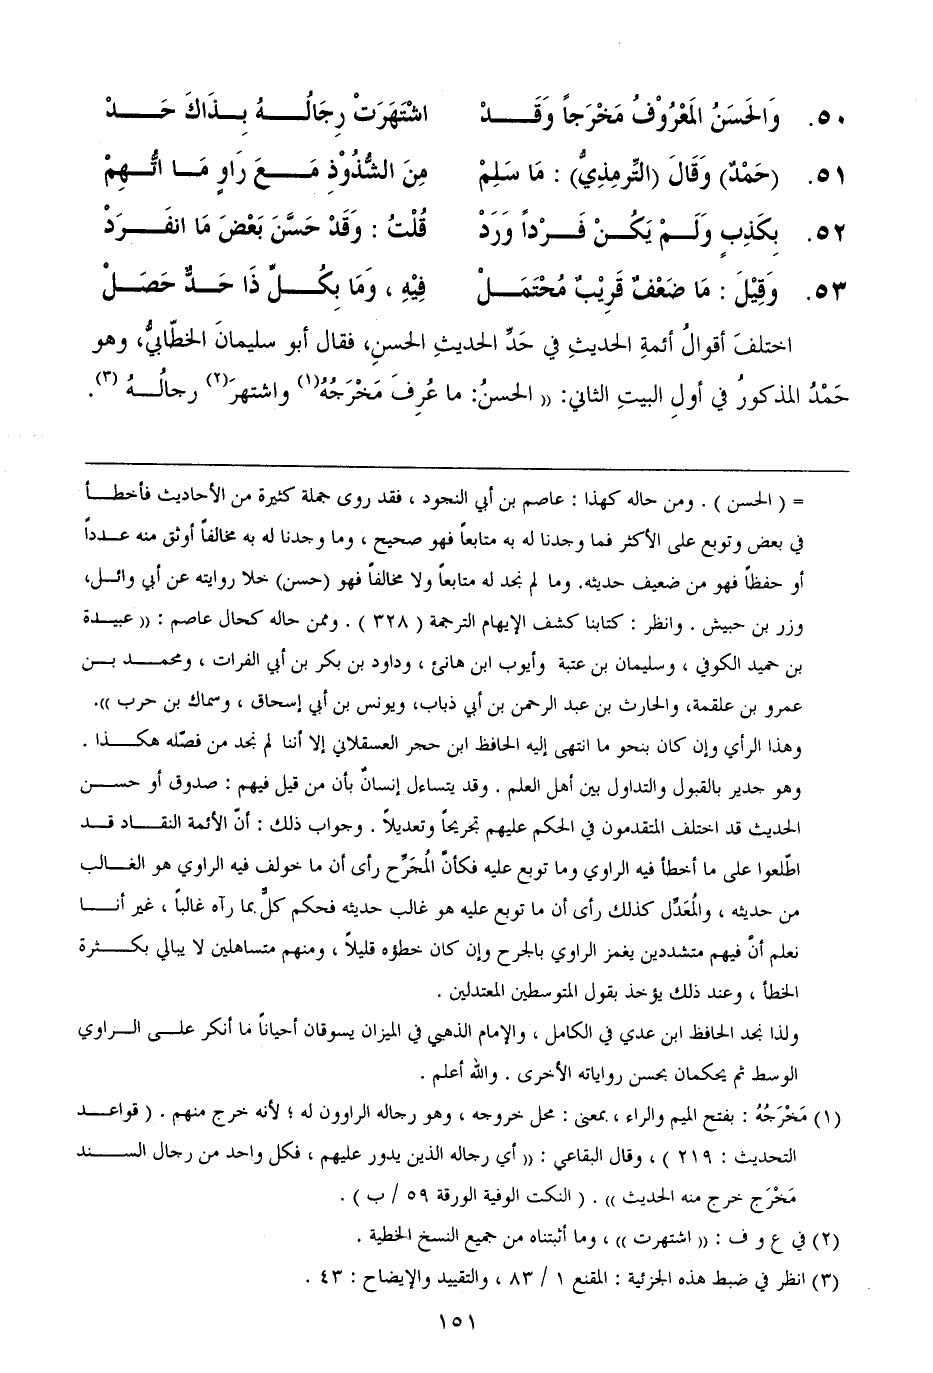 ٥٠. وَالحَسَنُ المَعْرُوْفُ مَخْرَجاً وَقَـــدْ اشْتَهَرَتْ رِجَالُـــهُ بِـذَاكَ حَـــدْ
٥١. (حَمْدٌ) وَقَالَ (التِّرمِذِيُّ) : مَا سَلِمْ مِنَ الشُّذُوْذِ مَـــعَ رَاوٍ مَـا اتُّـهِمْ
٥٢. بِكَذِبٍ وَلَـمْ يَكُـنْ فَـرْداً وَرَدْ قُلْتُ : وَقَدْ حَسَّنَ بَعْضَ مَا انفَـرَدْ
٥٣. وَقِيْلَ : مَا ضَعْفٌ قَرِيْبٌ مُحْتَمَـلْ فِيْهِ ، وَمَا بِكُـــلِّ ذَا حَـدٌّ حَصَـلْ
اختلفَ أقوالُ أئمةِ الحديثِ في حَدِّ الحديثِ الحسنِ، فقال أبو سليمانَ الخطّابيُّ، وهو
حَمْدُ المذكورُ في أولِ البيتِ الثاني: (( الحسنُ: ما عُرِفَ مَخْرَجُهُ(١) واشتهرَ(٢) رجالُـهُ (٣).
= ( الحسن ) . ومن حاله كهذا : عاصم بن أبي النجود ، فقد روى جملة كثيرة من الأحاديث فأخطـأ
في بعض وتوبع على الأكثر فما وجدنا له به متابعاً فهو صحيح ، وما وجدنا له به مخالفاً أوثق منه عـدداً
أو حفظاً فهو من ضعيف حديثه. وما لم نجد له متابعاً ولا مخالفاً فهو (حسن) خلا روايته عن أبي وائـل،
وزر بن حبيش . وانظر : كتابنا كشف الإيهام الترجمة ( ٣٢٨ ) . وممن حاله كحال عاصم : (( عبيـدة
بن حميد الكوفي ، وسليمان بن عتبة وأيوب ابن هانئ ، وداود بن بكر بن أبي الفرات ، ومحمـد بـن
عمرو بن علقمة، والحارث بن عبد الرحمن بن أبي ذباب، ويونس بن أبي إسحاق ، وسماك بن حرب )).
وهذا الرأي وإن كان بنحو ما انتهى إليه الحافظ ابن حجر العسقلاني إلا أننا لم نجد من فصّله هكـذا .
وهو جدير بالقبول والتداول بين أهل العلم . وقد يتساءل إنسانٌ بأن من قيل فيهم : صدوق أو حسـن
الحديث قد اختلف المتقدمون في الحكم عليهم تجريحاً وتعديلاً . وجواب ذلك : أنّ الأئمة النقـاد قـد
اطّلعوا على ما أخطأ فيه الراوي وما توبع عليه فكأنَّ المُجَرِّح رأى أن ما خولف فيه الراوي هو الغـالب
من حديثه ، والمُعَدِّل كذلك رأى أن ما توبع عليه هو غالب حديثه فحكم كلٌّ بما رآه غالباً ، غير أنـا
نعلم أنَّ فيهم متشددين يغمز الراوي بالجرح وإن كان خطؤه قليلاً ، ومنهم متساهلين لا يبالي بكـثرة
الخطأ ، وعند ذلك يؤخذ بقول المتوسطين المعتدلين .
ولذا نجد الحافظ ابن عدي في الكامل ، والإمام الذهبي في الميزان يسوقان أحياناً مَا أنكر علـى الـراوي
الوسط ثم يحكمان بحسن رواياته الأخرى . والله أعلم .
(١) مَخْرَجُهُ : بفتح الميم والراء ، بمعنى : محل خروجه ، وهو رجاله الراوون له ؛ لأنه خرج منهم . ( قواعـد
التحديث : ٢١٩ ) ، وقال البقاعي : (( أي رجاله الذين يدور عليهم ، فكل واحد من رجال السـند
مَخْرَج خرج منه الحديث )) . ( النكت الوفية الورقة ٥٩ / ب ) .
(٢) في ع و ف : (( اشتهرت )) ، وما أثبتناه من جميع النسخ الخطية .
(٣) انظر في ضبط هذه الجزئية : المقنع ١ / ٨٣ ، والتقييد والإيضاح : ٤٣ .
١٥١